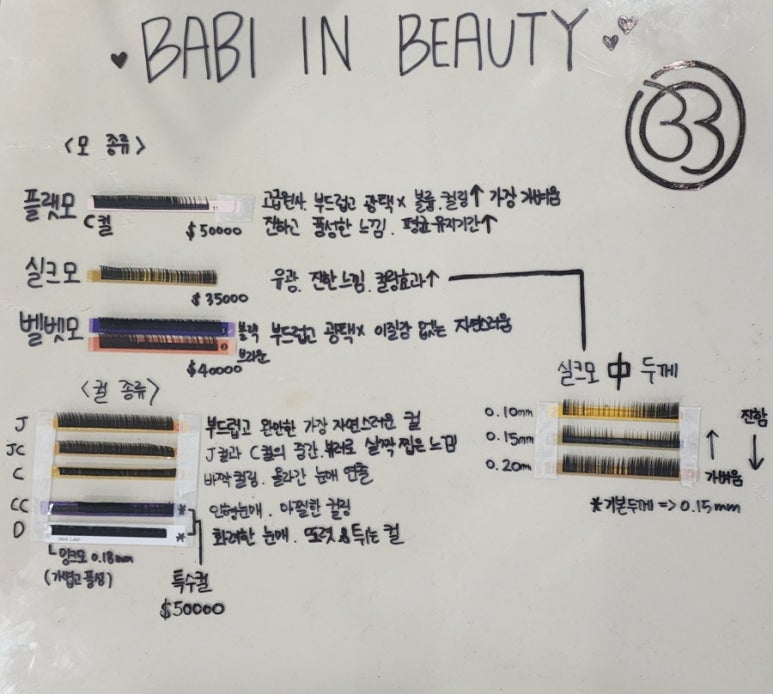 BABI IN BEAUTY
BB
<모 종류>
플랫모
C컬
$50000
고급원사. 부드럽고 광택x 볼륨.컬링↑ 가장 가벼움
진하고 풍성한 느낌. 평균유지기간↑
실크모
$35000
유광. 진한느낌. 컬링효과↑
벨벳모
블랙
브라운
$40000
부드럽고 광택x 이질감 없는 자연스러움
<컬 종류>
J 부드럽고 완만한 가장 자연스러운 컬
JC J컬과 C컬의 중간. 뷰러로 살짝 찝은 느낌
C 바짝 컬링. 올라간 눈매 연출
CC * 인형눈매. 아찔한 컬링
D * 화려한 눈매. 또렷 & 튀는 컬
밍크모 0.18mm
(가볍고 풍성)
특수컬
$50000
실크모 中 두께
0.10mm
0.15mm
0.20mm
진함
↑ ↓
가벼움
*기본두께 => 0.15mm